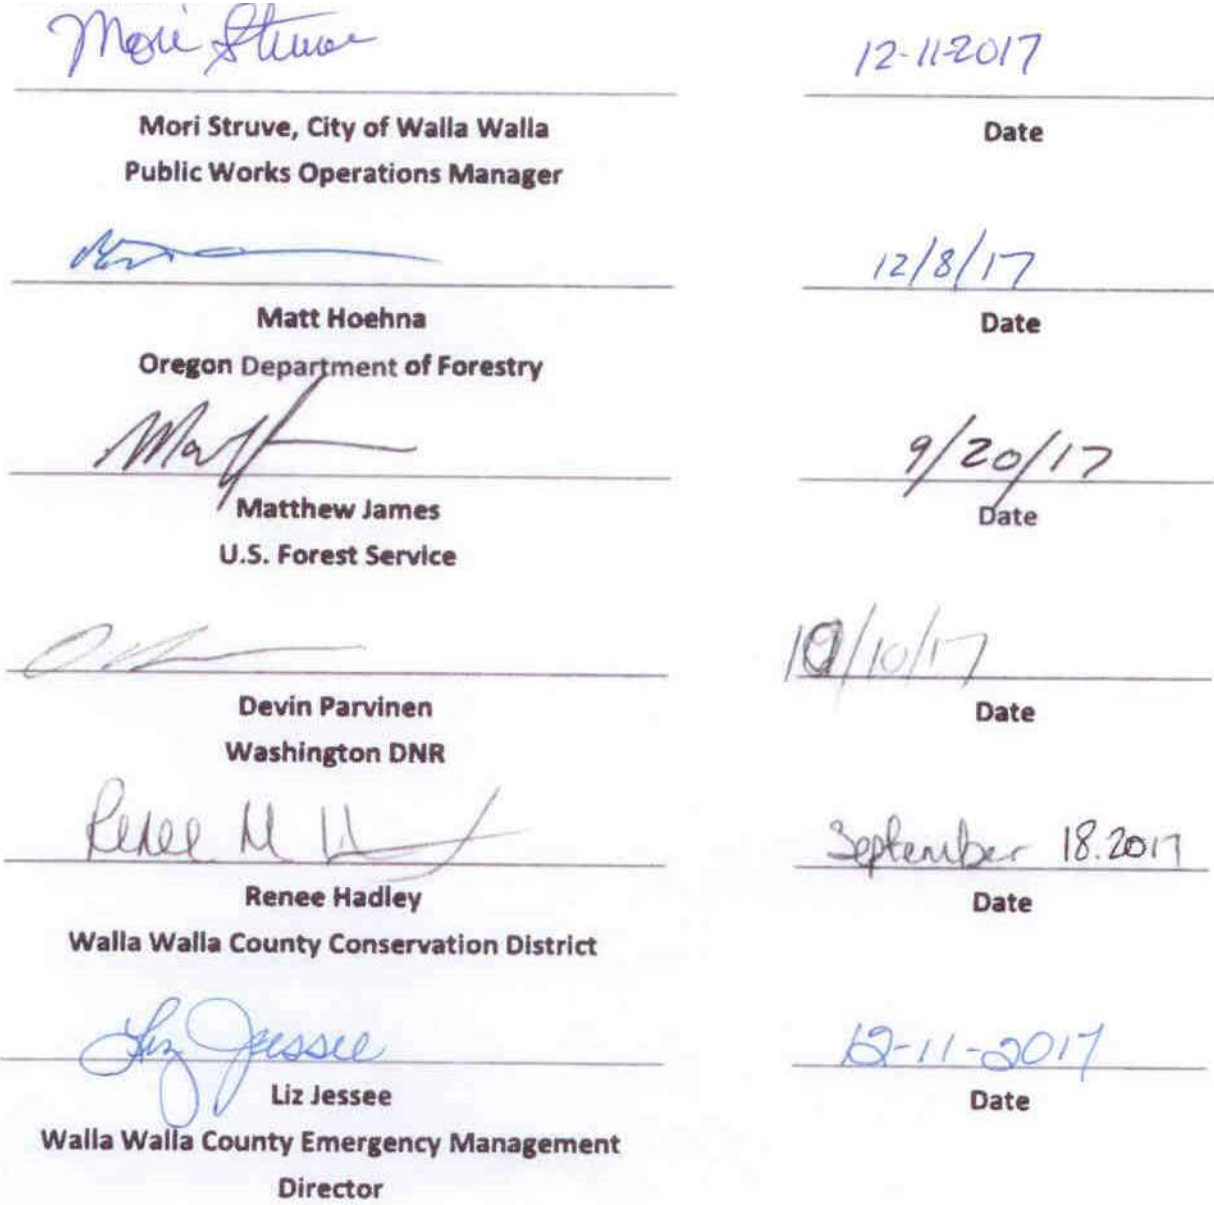 Mori Struve 12-11-2017
Mori Struve, City of Walla Walla Date
Public Works Operations Manager
12/8/17
Matt Hoehna Date
Oregon Department of Forestry
9/20/17
Matthew James Date
U.S. Forest Service
10/10/17
Devin Parvinen Date
Washington DNR
Renee M September 18.2017
Renee Hadley Date
Walla Walla County Conservation District
Liz Jessee 12-11-2017
Liz Jessee Date
Walla Walla County Emergency Management
Director